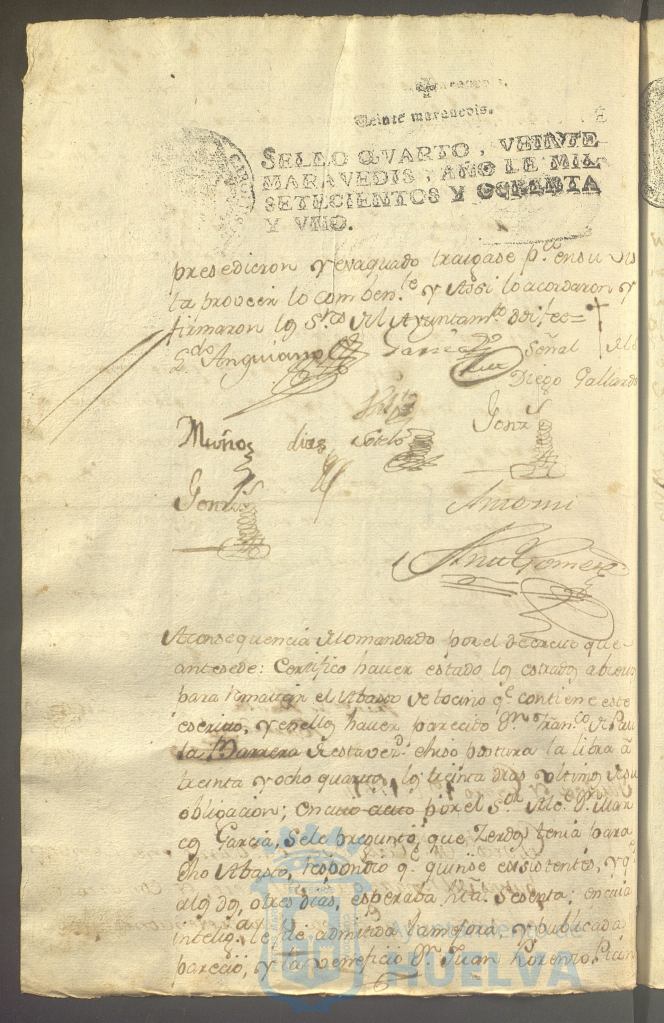 Veinte maravedis.
SELLO QVARTO, VEINTE
MARAVEDIS, AÑO DE MIL
SETECIENTOS Y OCHENTA
Y VNO.
presedieron y evaquado traigase p.ª en su vis
ta proveer lo comben.te y Assi lo acordaron y
firmaron los S.res del Ayuntam.to doi fee=
L.do Anguiano Garcia Señal de
Diego Gallardo
Muñoz dias Sotelo Gonz.s
Gonz.s Antemi
Gomez
A consequencia de lo mandado por el decreto que
antesede: Certifico haver estado los estrados abiertos
para rematar el Abasto de tocino q.e contiene este
escrito, y en ellos haver parecido D.n Fran.co de Pau
la Barrera de esta vez.d e hiso postura la libra à
treinta y ocho quartos, los treinta dias ultimos de su
obligacion; en cuio acto por el S.or Alc.e D.n Mar
cos Garcia, se le preguntó, que Zerdos tenia para
dho Abasto, respondió q.e quinse existentes, y q.e
a los dos, o tres dias, esperaba hta. sesenta; en cuia
intelig.ª le fue admitida la mejora, y publicada
pareció, y la veneficio D.n Juan Lorenzo
Ayuntamiento de
HUELVA